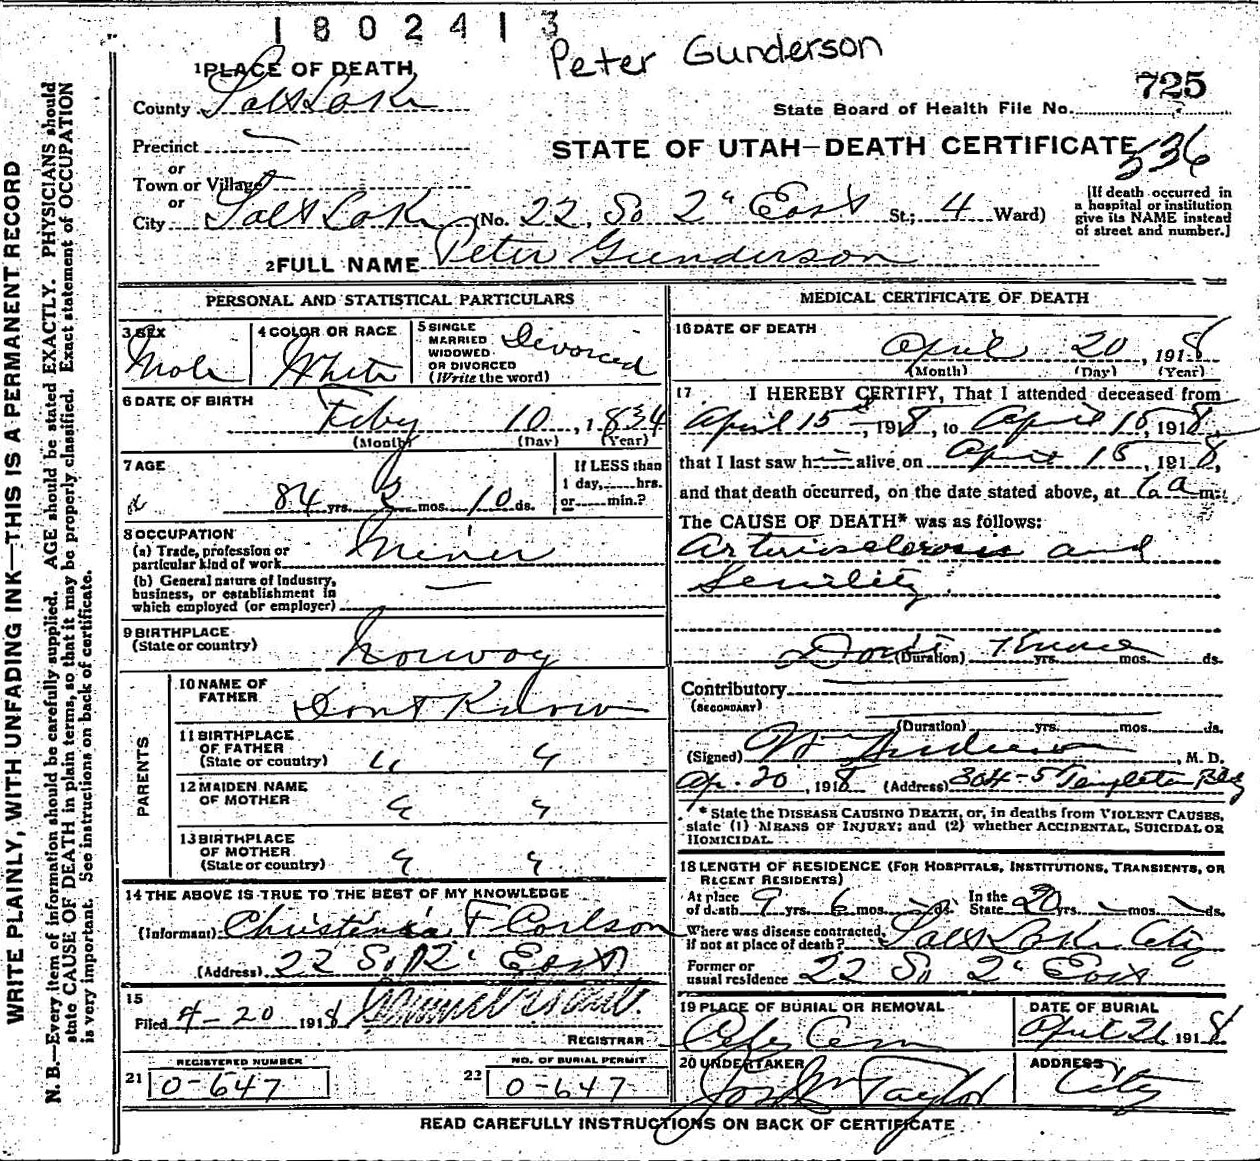 1802413
Peter Gunderson
725
State Board of Health File No.
1 PLACE OF DEATH
County Salt Lake
Precinct
or
Town or Village
or
City Salt Lake (No. 22, So 2" East St; 4 Ward)
STATE OF UTAH—DEATH CERTIFICATE
536
[If death occurred in
a hospital or institution
give its NAME instead
of street and number.]
2 FULL NAME Peter Gunderson
PERSONAL AND STATISTICAL PARTICULARS
3 SEX
Male
4 COLOR OR RACE
White
5 SINGLE
MARRIED
WIDOWED
OR DIVORCED
(Write the word)
Divorced
6 DATE OF BIRTH
Feby 10, 1834
(Month) (Day) (Year)
7 AGE
84 yrs. 2 mos. 10 ds.
If LESS than
1 day, hrs.
or min.?
8 OCCUPATION
(a) Trade, profession or
particular kind of work Miner
(b) General nature of Industry,
business, or establishment in
which employed (or employer)
9 BIRTHPLACE
(State or country)
Norway
PARENTS
10 NAME OF
FATHER
Dont Know
11 BIRTHPLACE
OF FATHER
(State or country) " "
12 MAIDEN NAME
OF MOTHER " "
13 BIRTHPLACE
OF MOTHER
(State or country) " "
14 THE ABOVE IS TRUE TO THE BEST OF MY KNOWLEDGE
(Informant) Christina F Carlson
(Address) 22 So 2" East
15
Filed 4-20 1918
REGISTRAR
REGISTERED NUMBER
21 0-647
NO. OF BURIAL PERMIT
22 0-647
MEDICAL CERTIFICATE OF DEATH
16 DATE OF DEATH
April 20, 1918
(Month) (Day) (Year)
17 I HEREBY CERTIFY, That I attended deceased from
April 15, 1918, to April 15, 1918,
that I last saw h alive on April 15, 1918,
and that death occurred, on the date stated above, at 6 a m.
The CAUSE OF DEATH* was as follows:
Arteriosclerosis and
Senility
Dont Know
(Duration) yrs. mos. ds.
Contributory
(SECONDARY)
(Duration) yrs. mos. ds.
(Signed) Anderson, M. D.
Apr. 20, 1918 (Address) 304-5 Templeton Bldg
* State the DISEASE CAUSING DEATH, or, in deaths from VIOLENT CAUSES,
state (1) MEANS OF INJURY; and (2) whether ACCIDENTAL, SUICIDAL OR
HOMICIDAL.
18 LENGTH OF RESIDENCE (FOR HOSPITALS, INSTITUTIONS, TRANSIENTS, OR
RECENT RESIDENTS)
At place
of death 9 yrs. 6 mos. ds.
In the
State 20 yrs. mos. ds.
Where was disease contracted,
if not at place of death? Salt Lake City
Former or
usual residence 22 So 2" East
19 PLACE OF BURIAL OR REMOVAL
City Cem
DATE OF BURIAL
April 21, 1918
20 UNDERTAKER
Jos Wm Taylor
ADDRESS
City
READ CAREFULLY INSTRUCTIONS ON BACK OF CERTIFICATE
WRITE PLAINLY, WITH UNFADING INK—THIS IS A PERMANENT RECORD
N. B.—Every item of information should be carefully supplied. AGE should be stated EXACTLY. PHYSICIANS should
state CAUSE OF DEATH in plain terms, so that it may be properly classified. Exact statement of OCCUPATION
is very important. See instructions on back of certificate.